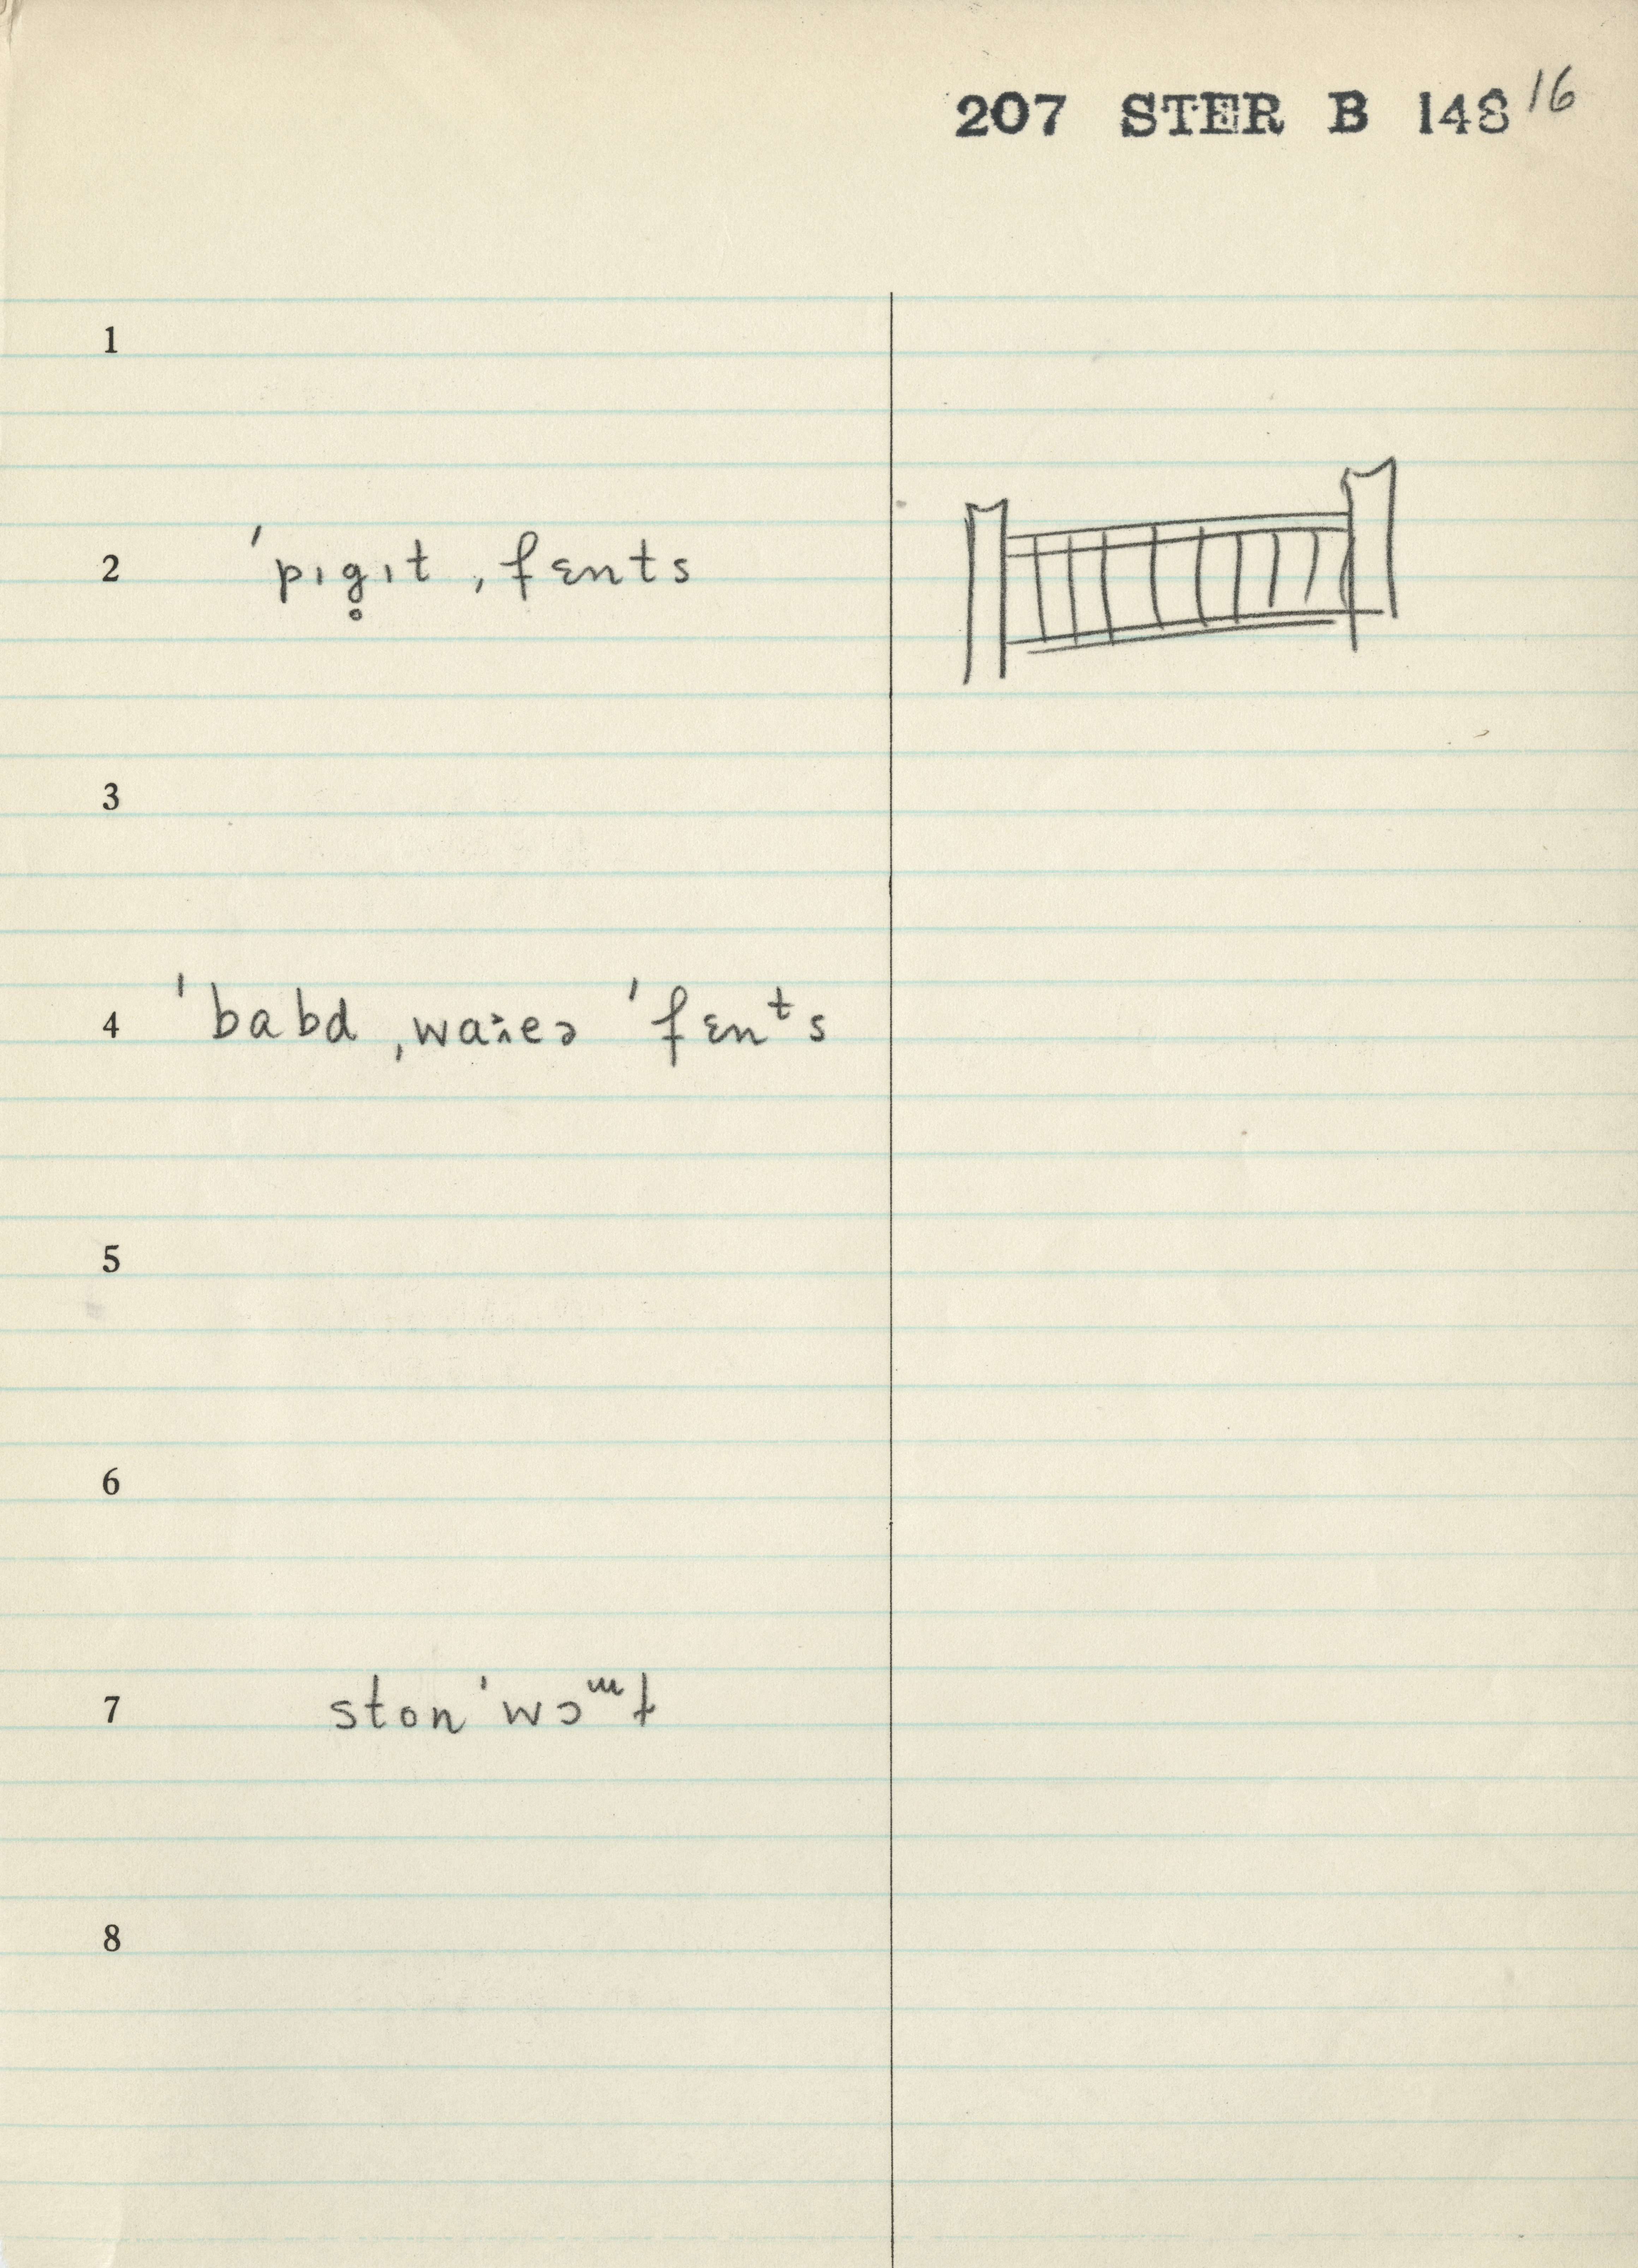 207 STER B 148 16
1
2 ˈpɪg̥ɪt ˌfɛnts
3
4 ˈbabd ˌwaɪɚ ˈfɛnᵗs
5
6
7 ston ˈwɔ
8